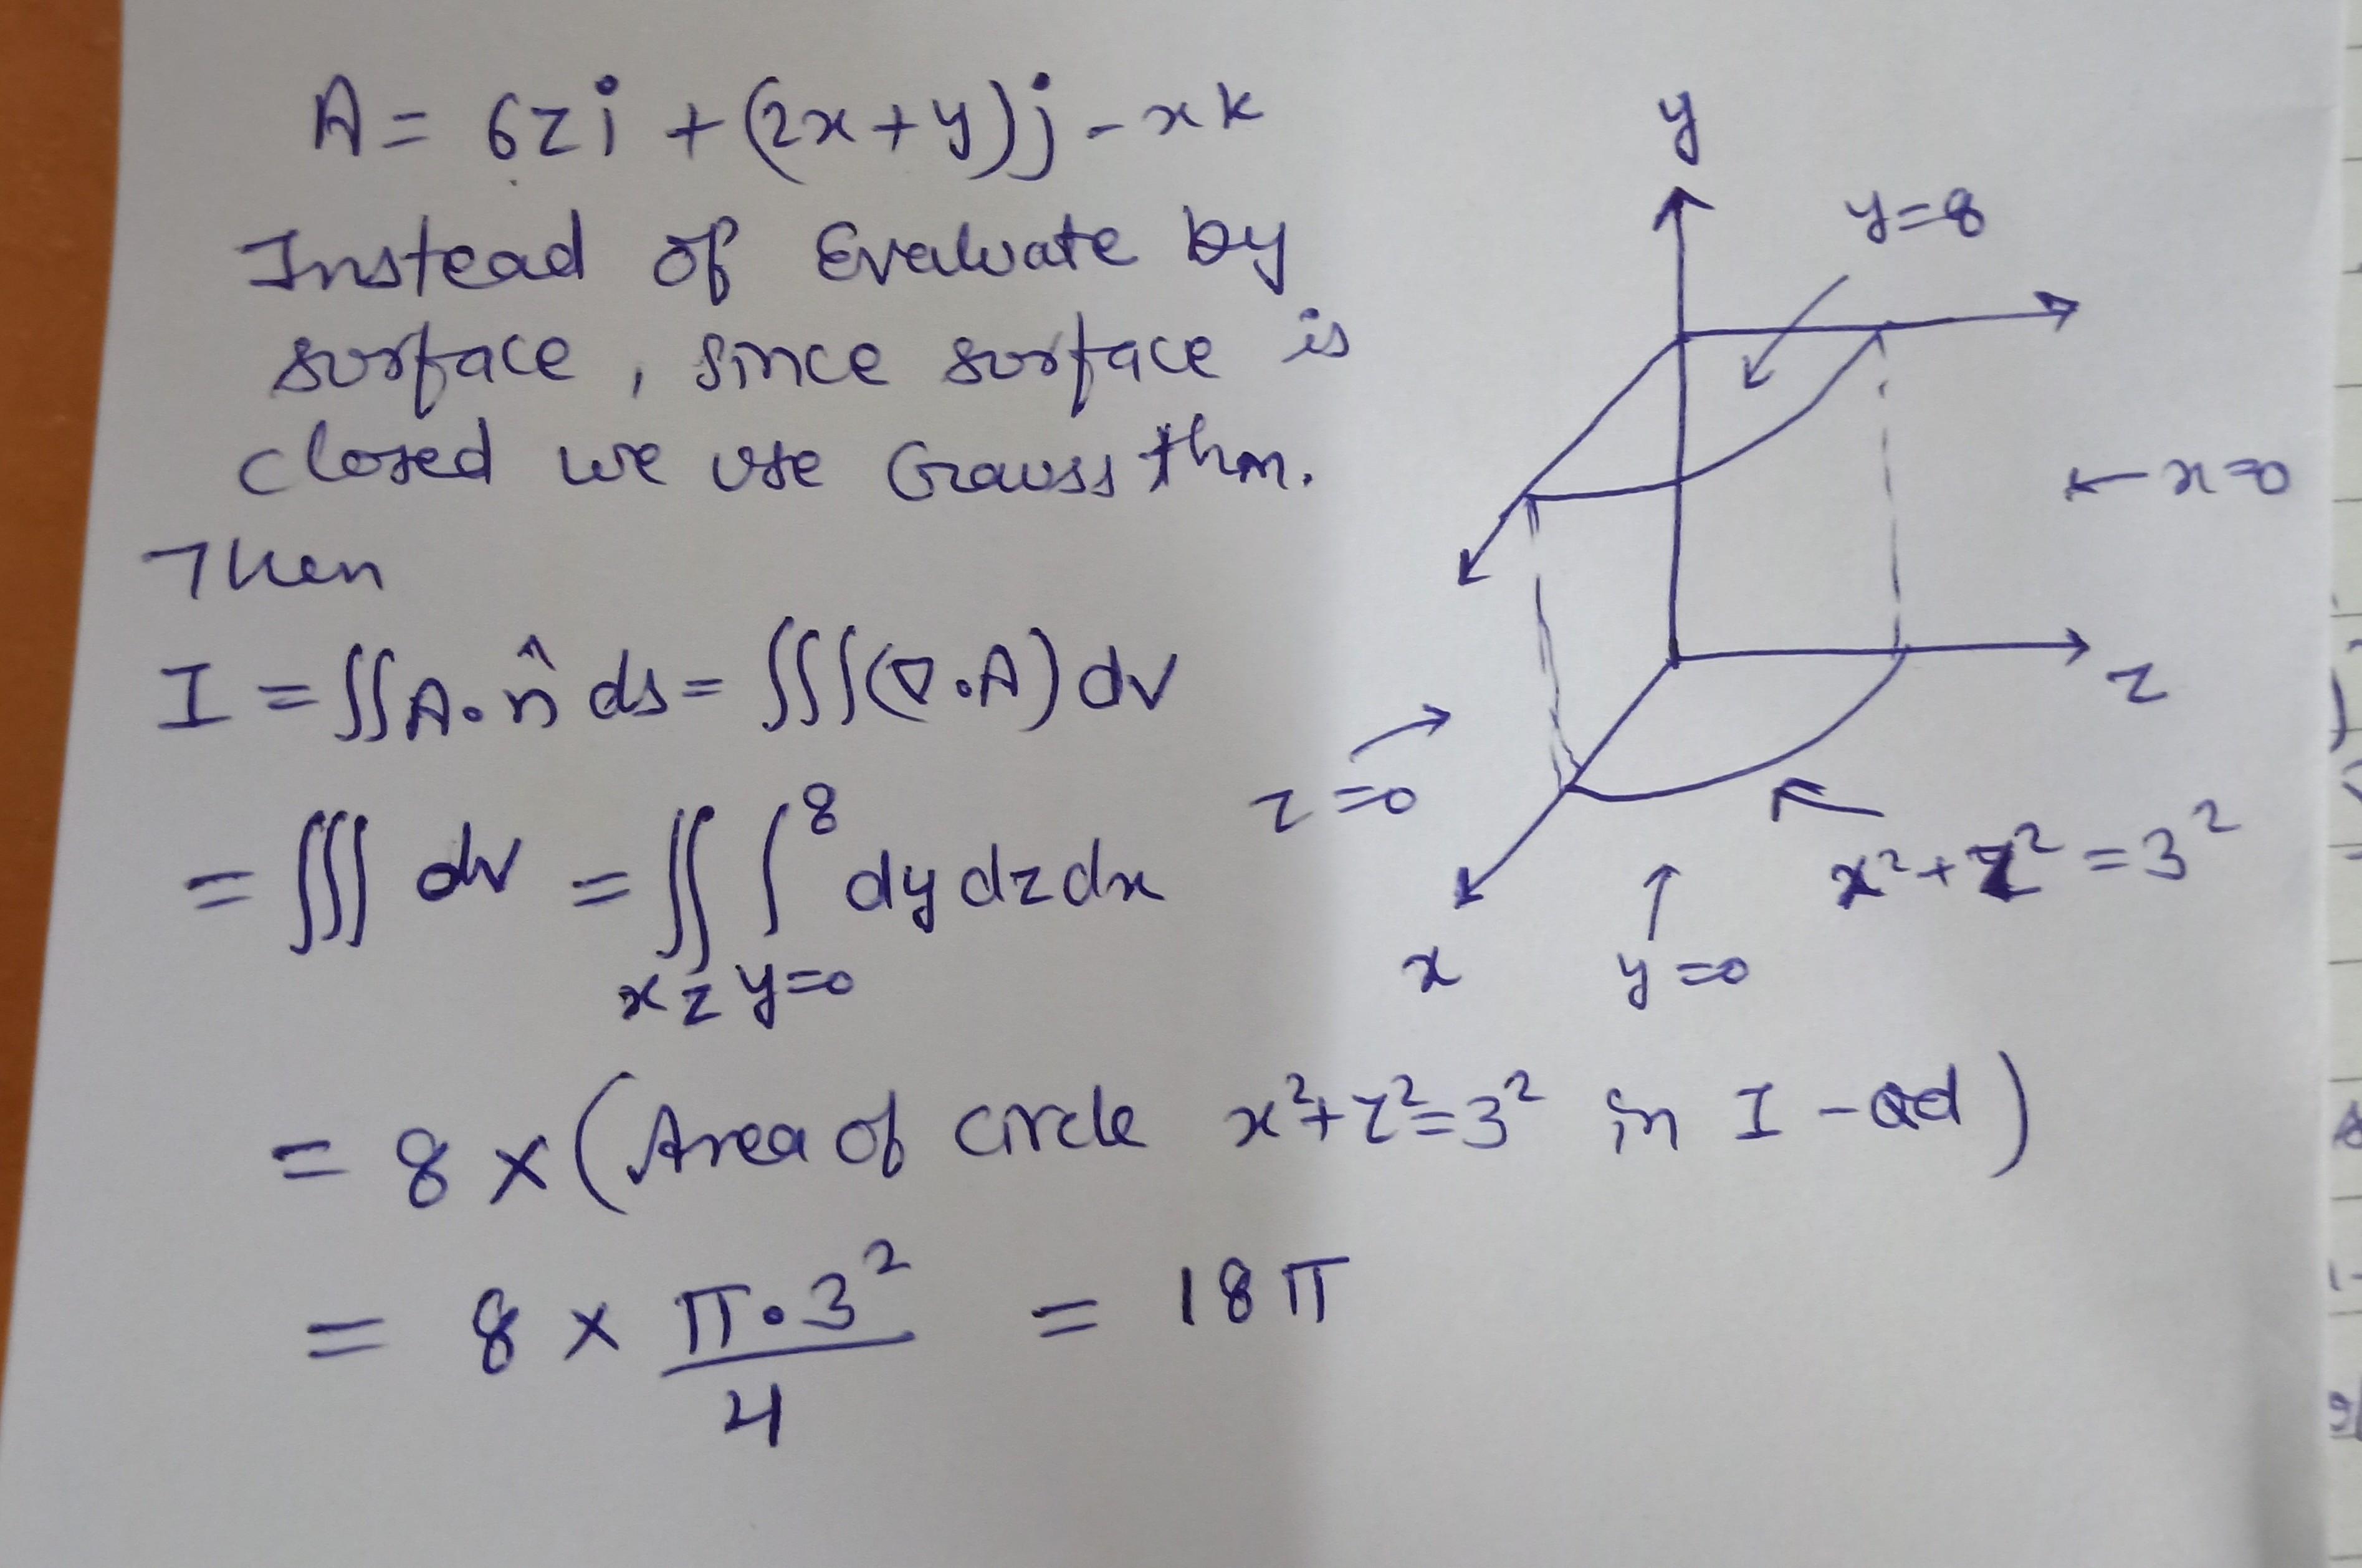 A = 6zi + (2x+y)j - xk
Instead of Evaluate by
surface, since surface is
closed we use Gauss thm.
Then
I = ∬A·n̂ ds = ∭(∇·A) dv
= ∭ dv = ∬ ∫⁸ dy dz dx
x z y=0
= 8 × (Area of circle x²+z²=3² in I-Qd)
= 8 × π·3²/4 = 18π
y
y=8
x=0
z
z=0
x²+z²=3²
x
y=0